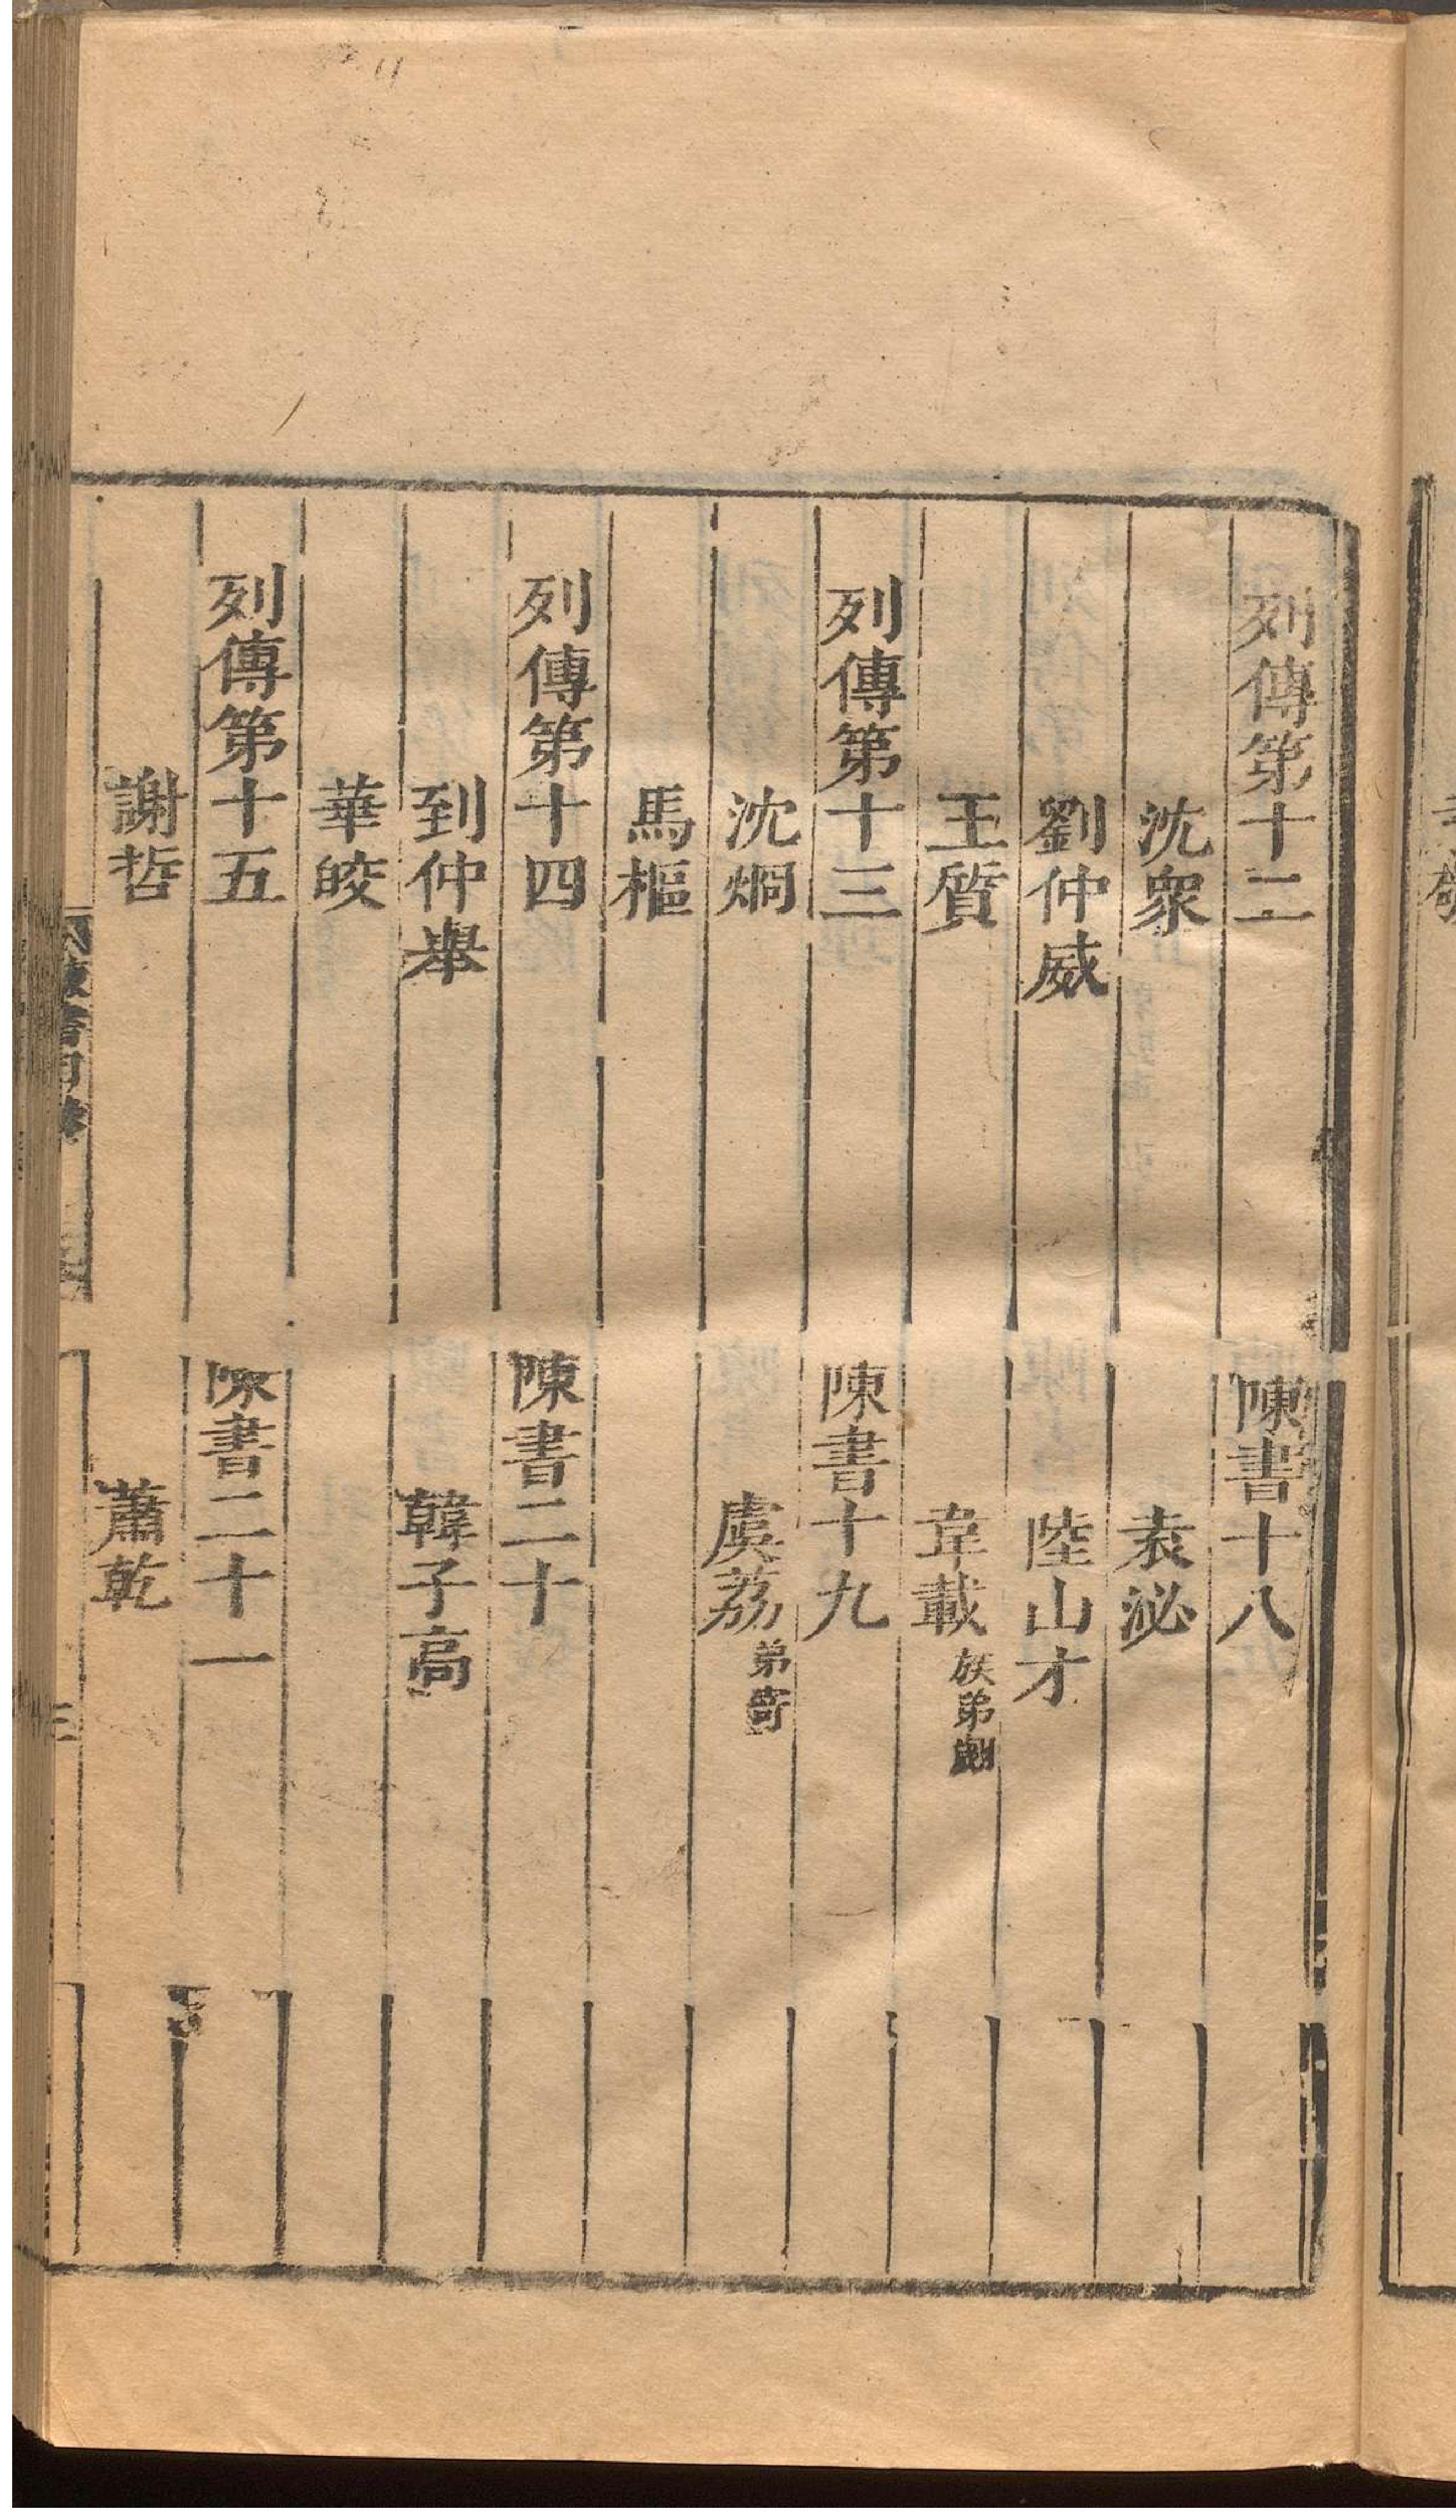 列傳第十二 陳書十八
沈衆 袁泌
劉仲威 陸山才
王質 韋載 族弟翽
列傳第十三 陳書十九
沈烱 虞荔 弟寄
馬樞
列傳第十四 陳書二十
到仲舉 韓子高
華皎
列傳第十五 陳書二十一
謝哲 蕭乾
陳書目錄 三